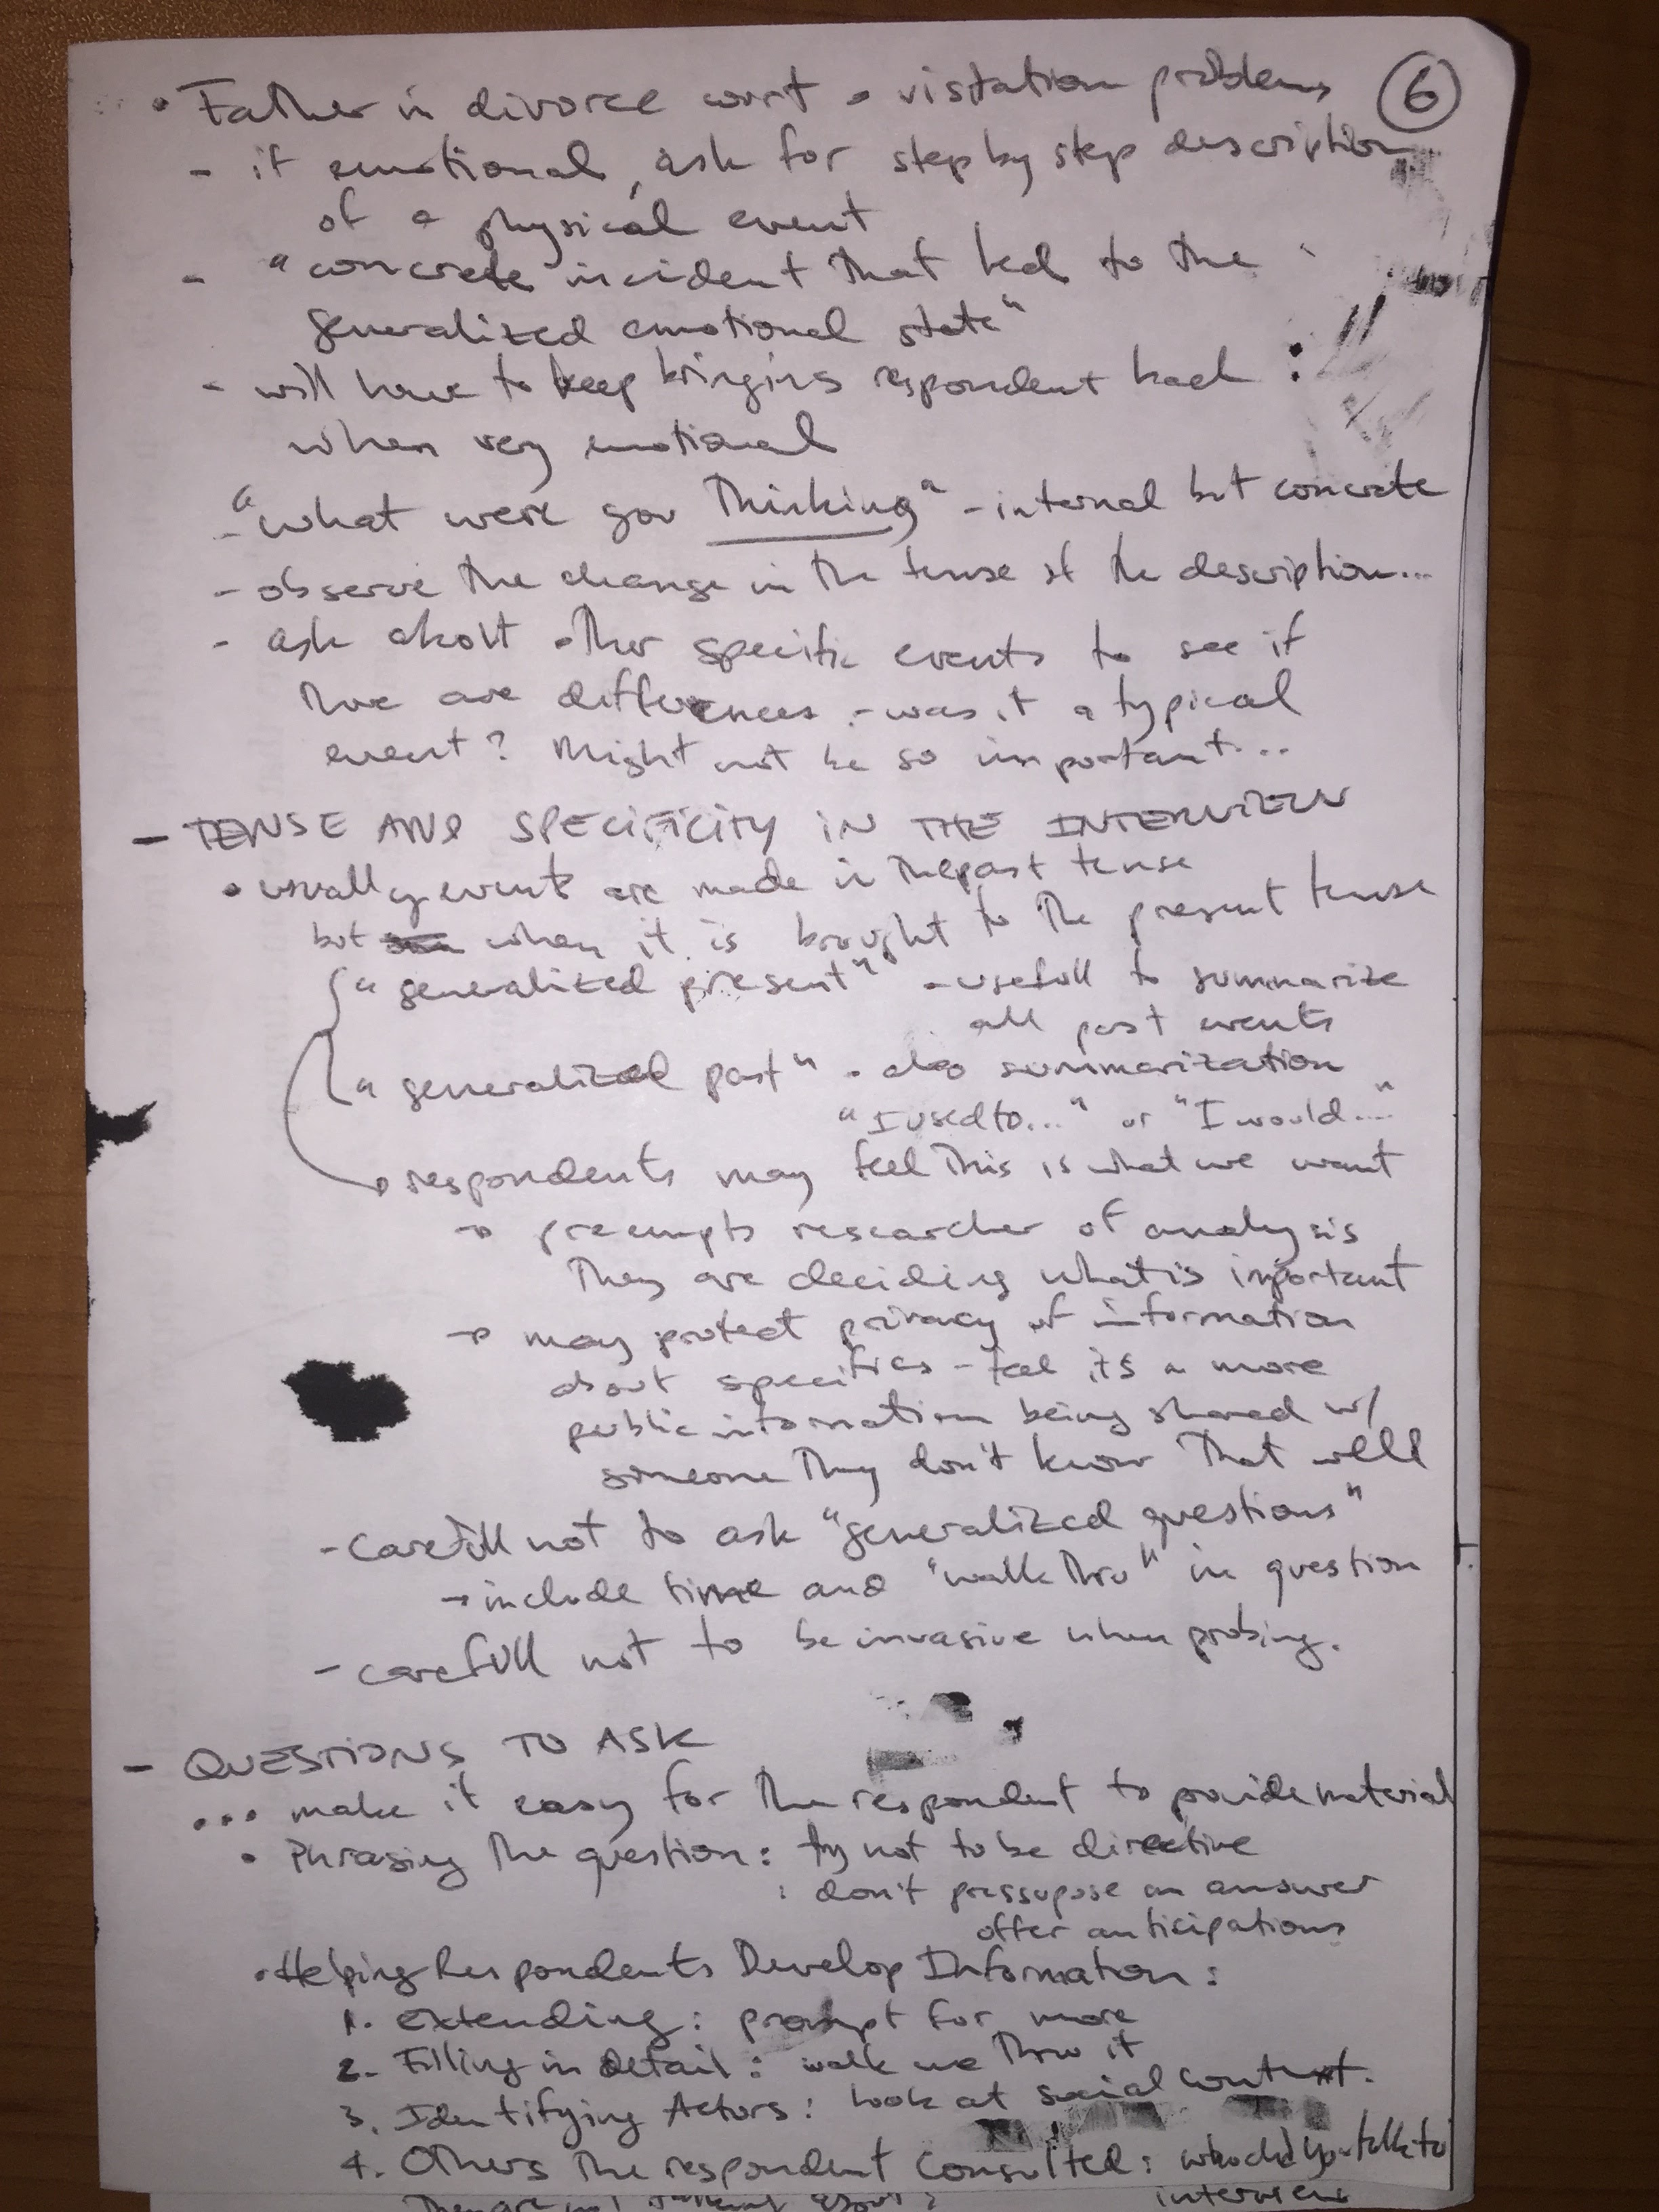 • Father in divorce court • visitation problems ⑥
- if emotional, ask for step by step description
of a physical event
- "concrete incident that led to the
generalized emotional state"
- will have to keep bringing respondent back
when very emotional
- "what were you thinking" - internal but concrete
- observe the change in the tense of the description...
- ask about other specific events to see if
there are differences - was it a typical
event? Might not be so important...
- TENSE AND SPECIFICITY IN THE INTERVIEW
• usually events are made in the past tense
but when it is brought to the present tense
"generalized present" - usefull to summarize
all past events
"generalized past" - also summarization
"I used to..." or "I would..."
→ respondents may feel this is what we want
→ preempts researcher of analysis
They are deciding what is important
→ may protect privacy of information
about specifics - feel its a more
public information being shared w/
someone they don't know that well
- carefull not to ask "generalized questions"
→ include time and "walk thru" in question
- carefull not to be invasive when probing.
- QUESTIONS TO ASK
... make it easy for the respondent to provide material
• Phrasing the question: try not to be directive
: don't pressupose an answer
offer anticipations
• Helping Respondents Develop Information:
1. extending: prompt for more
2. Filling in detail: walk me thru it
3. Identifying Actors: look at social context.
4. Others the respondent consulted: who did you talk to
They are not
interview